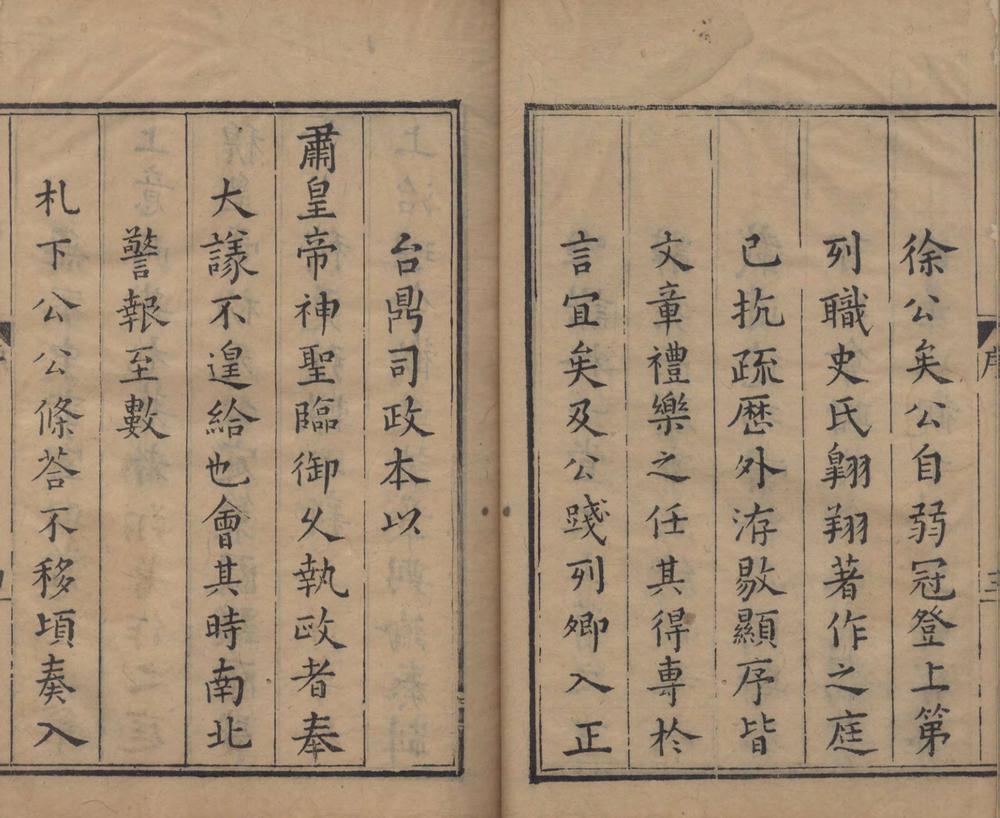 徐公矣公自弱冠登上第
列職史氏翺翔著作之庭
已抗疏歷外洊敭顯序皆
文章禮樂之任其得專於
言冝矣及公踐列卿入正
台鼎司政本以
肅皇帝神聖臨御乆執政者奉
大議不遑給也會其時南北
警報至數
札下公公條荅不移頃奏入